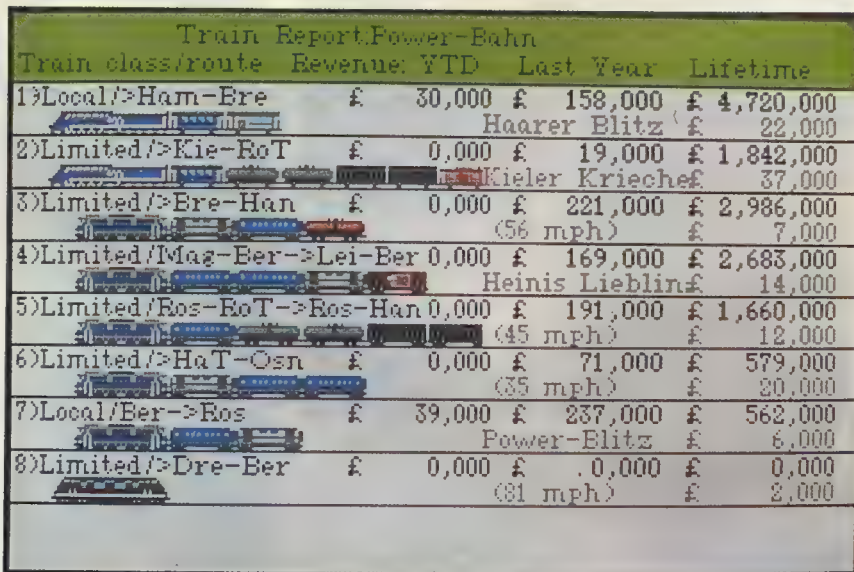 Train Report:Power-Bahn
Train class/route Revenue: YTD Last Year Lifetime
1)Local/>Ham-Bre £ 30,000 £ 158,000 £ 4,720,000
Haarer Blitz £ 22,000
2)Limited/>Kie-RoT £ 0,000 £ 19,000 £ 1,842,000
Kieler Krieche£ 37,000
3)Limited/>Bre-Han £ 0,000 £ 221,000 £ 2,986,000
(56 mph) £ 7,000
4)Limited/Mag-Ber->Lei-Ber 0,000 £ 169,000 £ 2,683,000
Heinis Lieblin£ 14,000
5)Limited/Ros-RoT->Ros-Han 0,000 £ 191,000 £ 1,660,000
(45 mph) £ 12,000
6)Limited/>HaT-Osn £ 0,000 £ 71,000 £ 579,000
(35 mph) £ 20,000
7)Local/Ber->Ros £ 39,000 £ 237,000 £ 562,000
Power-Blitz £ 6,000
8)Limited/>Dre-Ber £ 0,000 £ 0,000 £ 0,000
(81 mph) £ 2,000